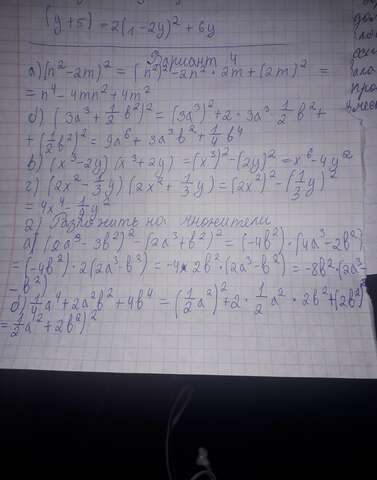 (y+5) = 2(1-2y)² + 6y
Вариант 4
а) (n²-2m)² = (n²)² - 2n² · 2m + (2m)² =
= n⁴ - 4mn² + 4m²
б) (3a³ + 1/2 b²)² = (3a³)² + 2 · 3a³ · 1/2 b² +
+ (1/2 b²)² = 9a⁶ + 3a³b² + 1/4 b⁴
в) (x³-2y)(x³+2y) = (x³)² - (2y)² = x⁶ - 4y²
г) (2x² - 1/3 y)(2x² + 1/3 y) = (2x²)² - (1/3 y)²
= 4x⁴ - 1/9 y²
2) Разложить на множители
а) (2a³ - 3b²)² - (2a³ + b²)² = (-4b²) · (4a³ - 2b²)
= (-4b²) · 2(2a³ - b²) = -4 · 2b² · (2a³ - b²) = -8b² · (2a³
- b²)
б) 1/4 a⁴ + 2a²b² + 4b⁴ = (1/2 a²)² + 2 · 1/2 a² · 2b² + (2b²)²
= 1/2 a² + 2b²)²